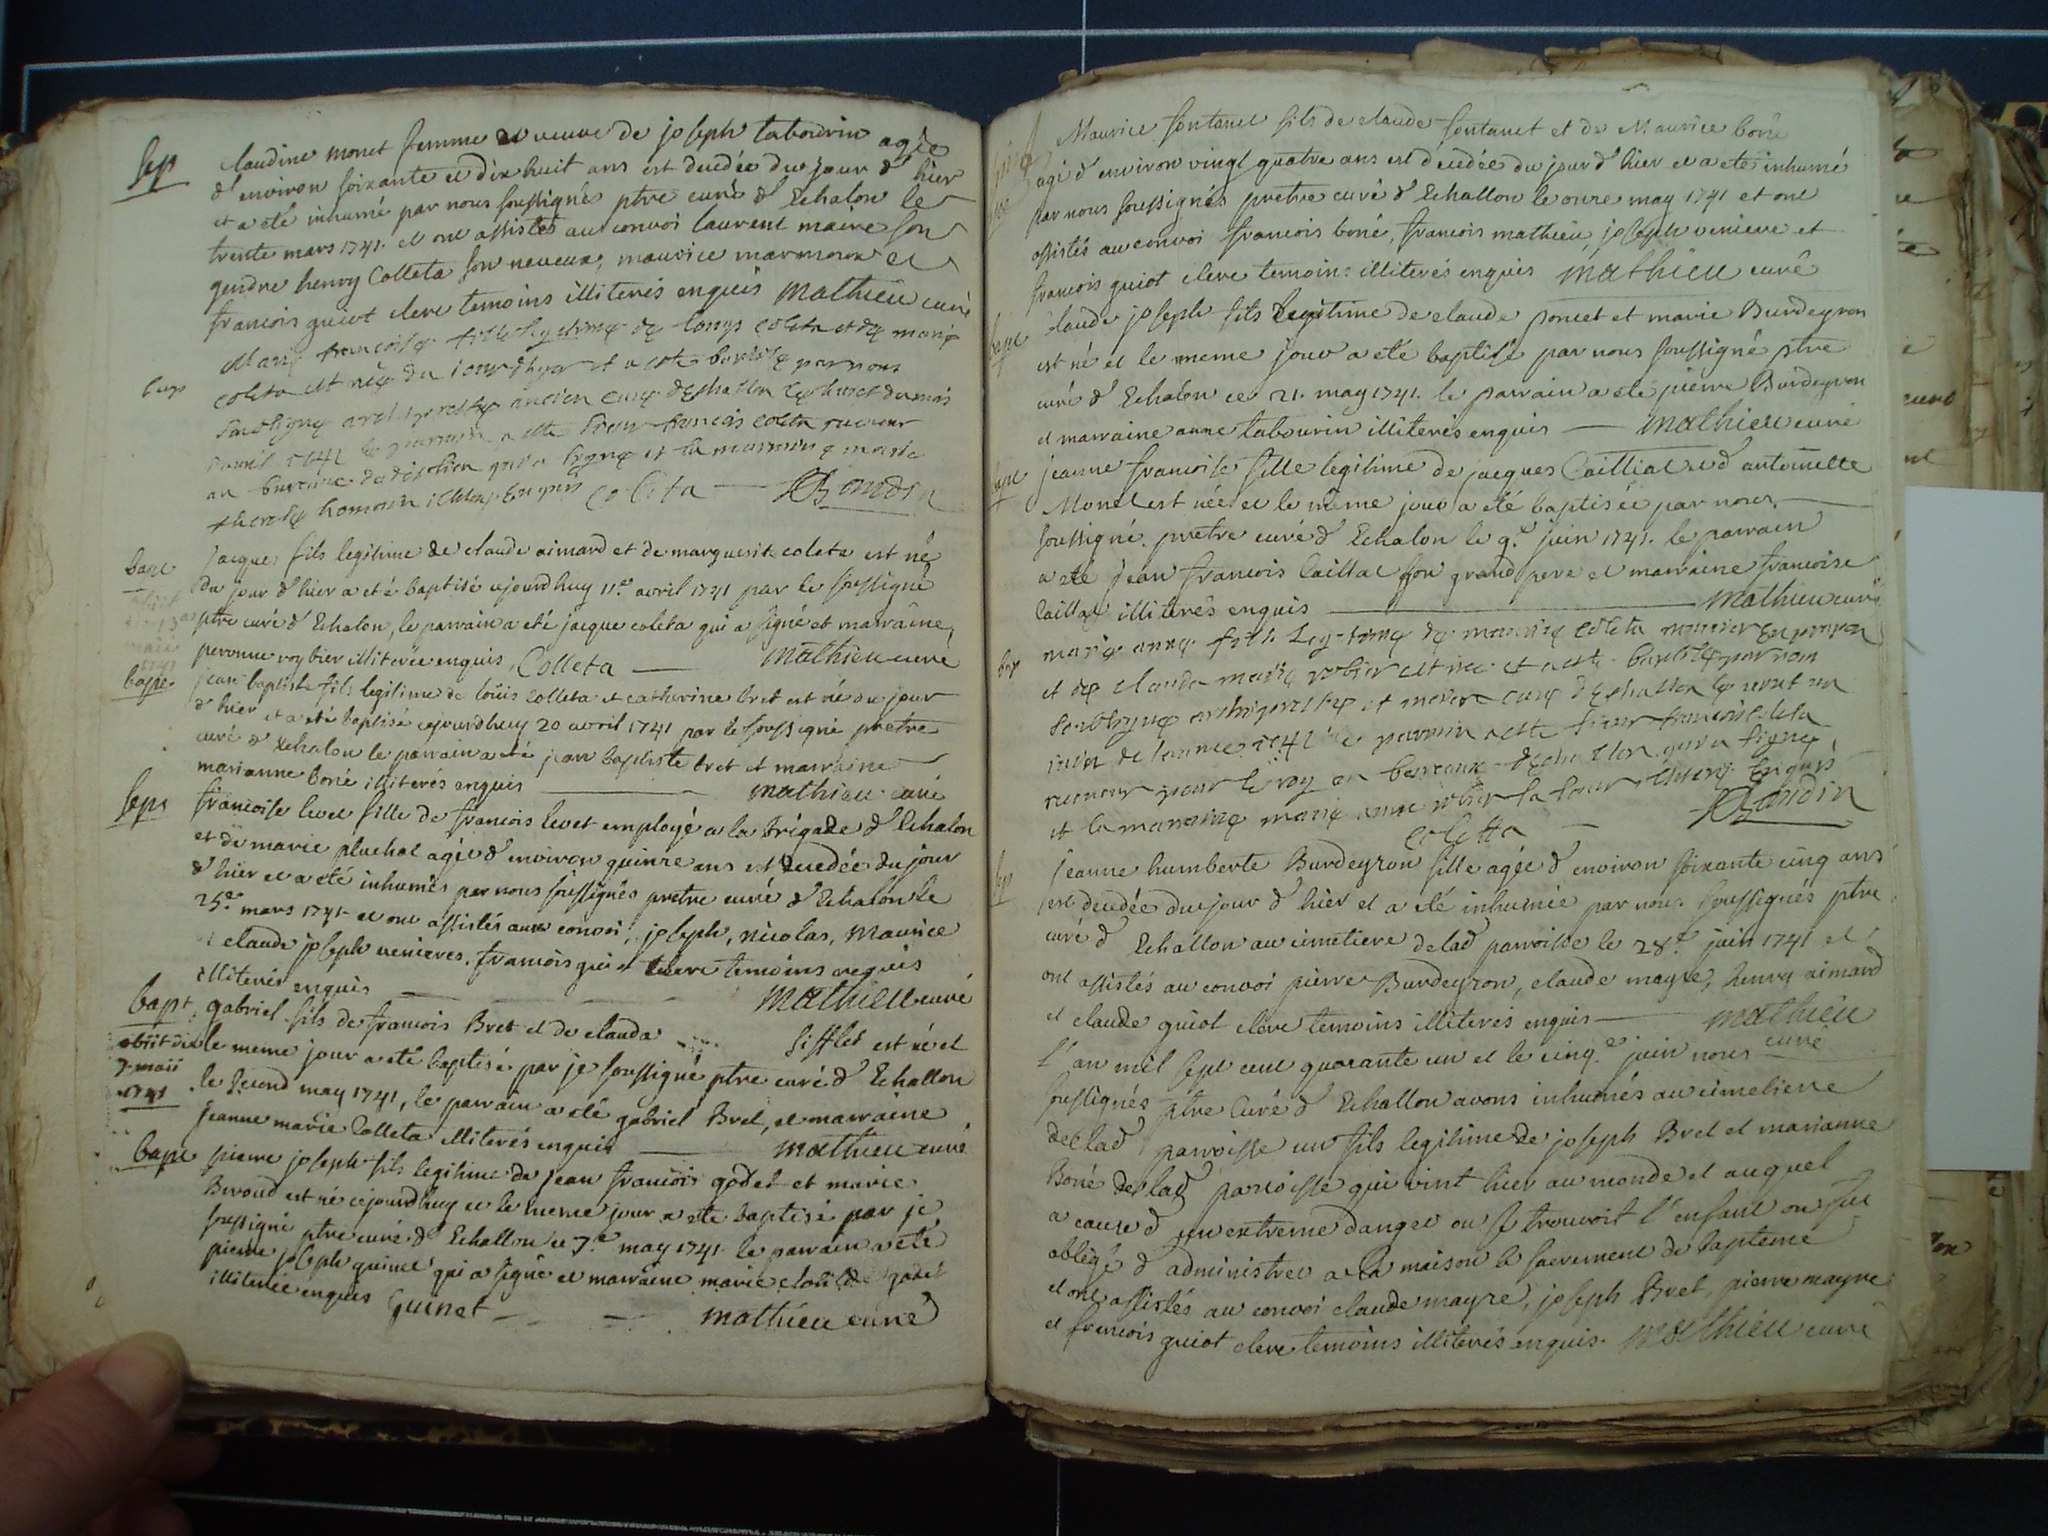 Sep
Claudine monet femme et veuve de joseph tabourin agée
d'environ soixante et dix huit ans est decedée du jour d'hier
et a été inhumé par nous soussigné ptre curé d'Echalon le
trente mars 1741. et ont assistés au convoi laurent maire son
gendre henry Colleta son neveux, maurice marmoux et
francois guiot clerc temoins illiterés enquis Mathieu curé
bap
Marie francoise fille legitime de louys coleta et de marie
coleta est née du jour dhyer et a esté batisée par nous
soubsigné archiprestre ancien curé deschallon le huict du mois
davril 1741 le parrain a esté sieur francois coleta receveur
au bureau qui a signé et la marraine marie
enquis Coleta — Blondin
bapt
jacques fils legitime de claude aimard et de marguerite coleta est né
du jour d'hier a eté baptisé ajourdhuy 11e avril 1741 par le soussigné
ptre curé d'Echalon, le parrain a eté jacque coleta qui a signé et marraine
peronne roybier illiterée enquis, Colleta — Mathieu curé
bapt
jean baptiste fils legitime de loüis colleta et catherine bret est né du jour
d'hier et a eté baptisé cejourdhuy 20 avril 1741 par le soussigné pretre
curé d'Echalon le parrain a eté jean baptiste bret et marraine
marianne boné illiterés enquis — mathieu curé
Sep
francoise levet fille de francois levet employé a la brigade d'Echalon
et de marie pluchat agée d'environ quinze ans est decedée du jour
d'hier et a été inhumés par nous soussignés pretre curé d'Echalon le
25e mars 1741 et ont assistés aux convoi, joseph, nicolas, Maurice
et claude joseph venieres, francois guiot clerc temoins requis
illiterés enquis — Mathieu curé
bapt
obiit die
7 maii
1741
gabriel fils de francois Bret et de clauda Sifflet est né et
le meme jour a eté baptisé par je soussigné ptre curé d'Echallon
le second may 1741, le parrain a eté gabriel Bret, et marraine
jeanne marie Colleta illiterés enquis — Mathieu curé
bapt
pierre joseph fils legitime de jean francois godet et marie
Beroud est né cejourdhuy et le meme jour a eté baptisé par je
soussigné ptre curé d'Echallon ce 7e may 1741. le parrain a eté
pierre joseph guinet qui a signé et marraine marie godet
illiterée enquis Guinet — Mathieu curé
Maurice fontanel fils de claude fontanel et de Maurice boné
agé d'environ vingt quatre ans est decedée du jour d'hier et a eté inhumé
par nous soussignés pretre curé d'Echallon le onze may 1741 et ont
assistés au convoi francois boné, francois mathieu, joseph veniere et
francois guiot clerc temoins illiterés enquis Mathieu curé
bapt
Claude joseph fils legitime de claude poncet et marie Burdeyron
est né et le meme jour a eté baptisé par nous soussigné ptre
curé d'Echalon ce 21. may 1741. le parrain a eté pierre Burdeyron
et marraine anne tabourin illiterés enquis — Mathieu curé
bapt
jeanne francoise fille legitime de jacques Cailliat et d'antoinette
Monet est née et le même jour a été baptisée par nous
soussigné pretre curé d'Echalon le 9e juin 1741. le parrain
a eté jean francois Caillat son grand pere et marraine francoise
Caillat illiterés enquis — Mathieu curé
bap
marie anne fille legitime de maurice coleta
et de clauda marie robier est née et a esté baptisée par nous
soubsigné archiprestre et ancien curé deschallon le
juin de lannee 1741 le parrain a esté sieur francois coleta
receveur pour le roy au bureaux deschallon qui a signé
et la marraine marie anne robier sa soeur enquis
Coletta — Blondin
Sep
jeanne humberte Burdeyron fille agée d'environ soixante cinq ans
est decedée du jour d'hier et a eté inhumée par nous soussignés ptre
curé d'Echallon au cimetiere de lad parroisse le 28e juin 1741 et
ont assistés au convoi pierre Burdeyron, claude mayre, henry aimard
et claude guiot clerc temoins illiterés enquis — Mathieu
curé
L'an mil sept cent quarante un et le cinq.e juin nous
soussignés ptre Curé d'Echallon avons inhumés au cimetierre
de lad parroisse un fils legitime de joseph Bret et marianne
Boné de lad parroisse qui vint hier au monde et auquel
a cause d'un extreme danger ou se trouvoit l'enfant on fut
obligé d'administrer a la maison le sacrement de bapteme
et ont assistés au convoi claude mayre, joseph Bret, pierre mayre
et francois guiot clerc temoins illiterés enquis. Mathieu curé